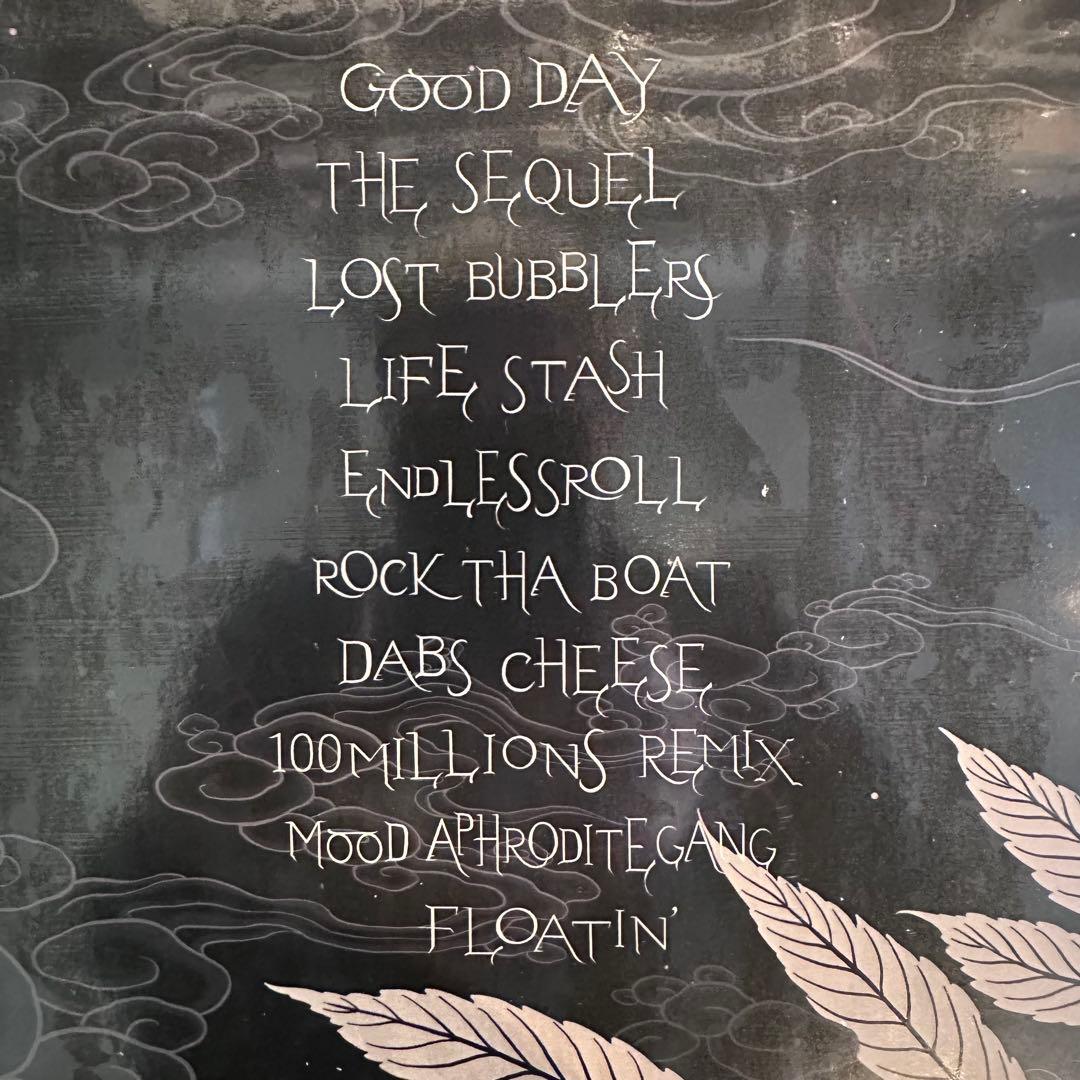 GOOD DAY
THE SEQUEL
LOST BUBBLERS
LIFE STASH
ENDLESSROLL
ROCK THA BOAT
DABS CHEESE
100MILLIONS REMIX
MOOD APHRODITEGANG
FLOATIN'